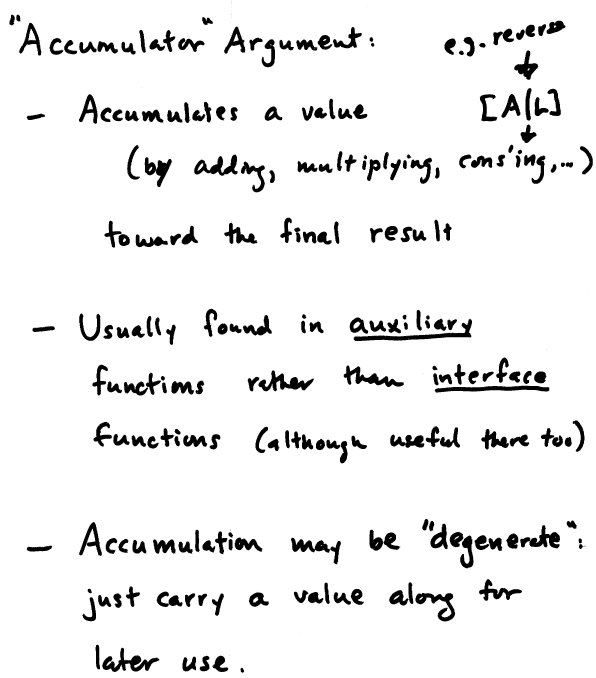 "Accumulator" Argument:
e.g. reverse
- Accumulates a value
[A|L]
(by adding, multiplying, cons'ing, ...)
toward the final result
- Usually found in auxiliary
functions rather than interface
functions (although useful there too)
- Accumulation may be "degenerate":
just carry a value along for
later use.